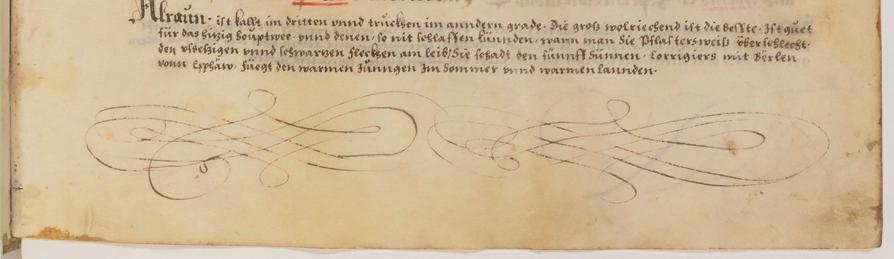 Alraun · ist kallt im dritten vnnd truckhen im anndern grade · Die groß wolriechend ist die besste · Ist guet
für das hizig houptwee · vnnd denen · so nit schlaffen künnden · wann man Sie Pflasters weiß überschlecht ·
den vlechigen vnnd schwarzen fleckhen am leib / Sie schadt den fünnff Sünnen · Corrigiers mit Berlen
vonn Epphäw · füegt den warmen Jünngen Im Sommer vnnd warmen Lannden ·